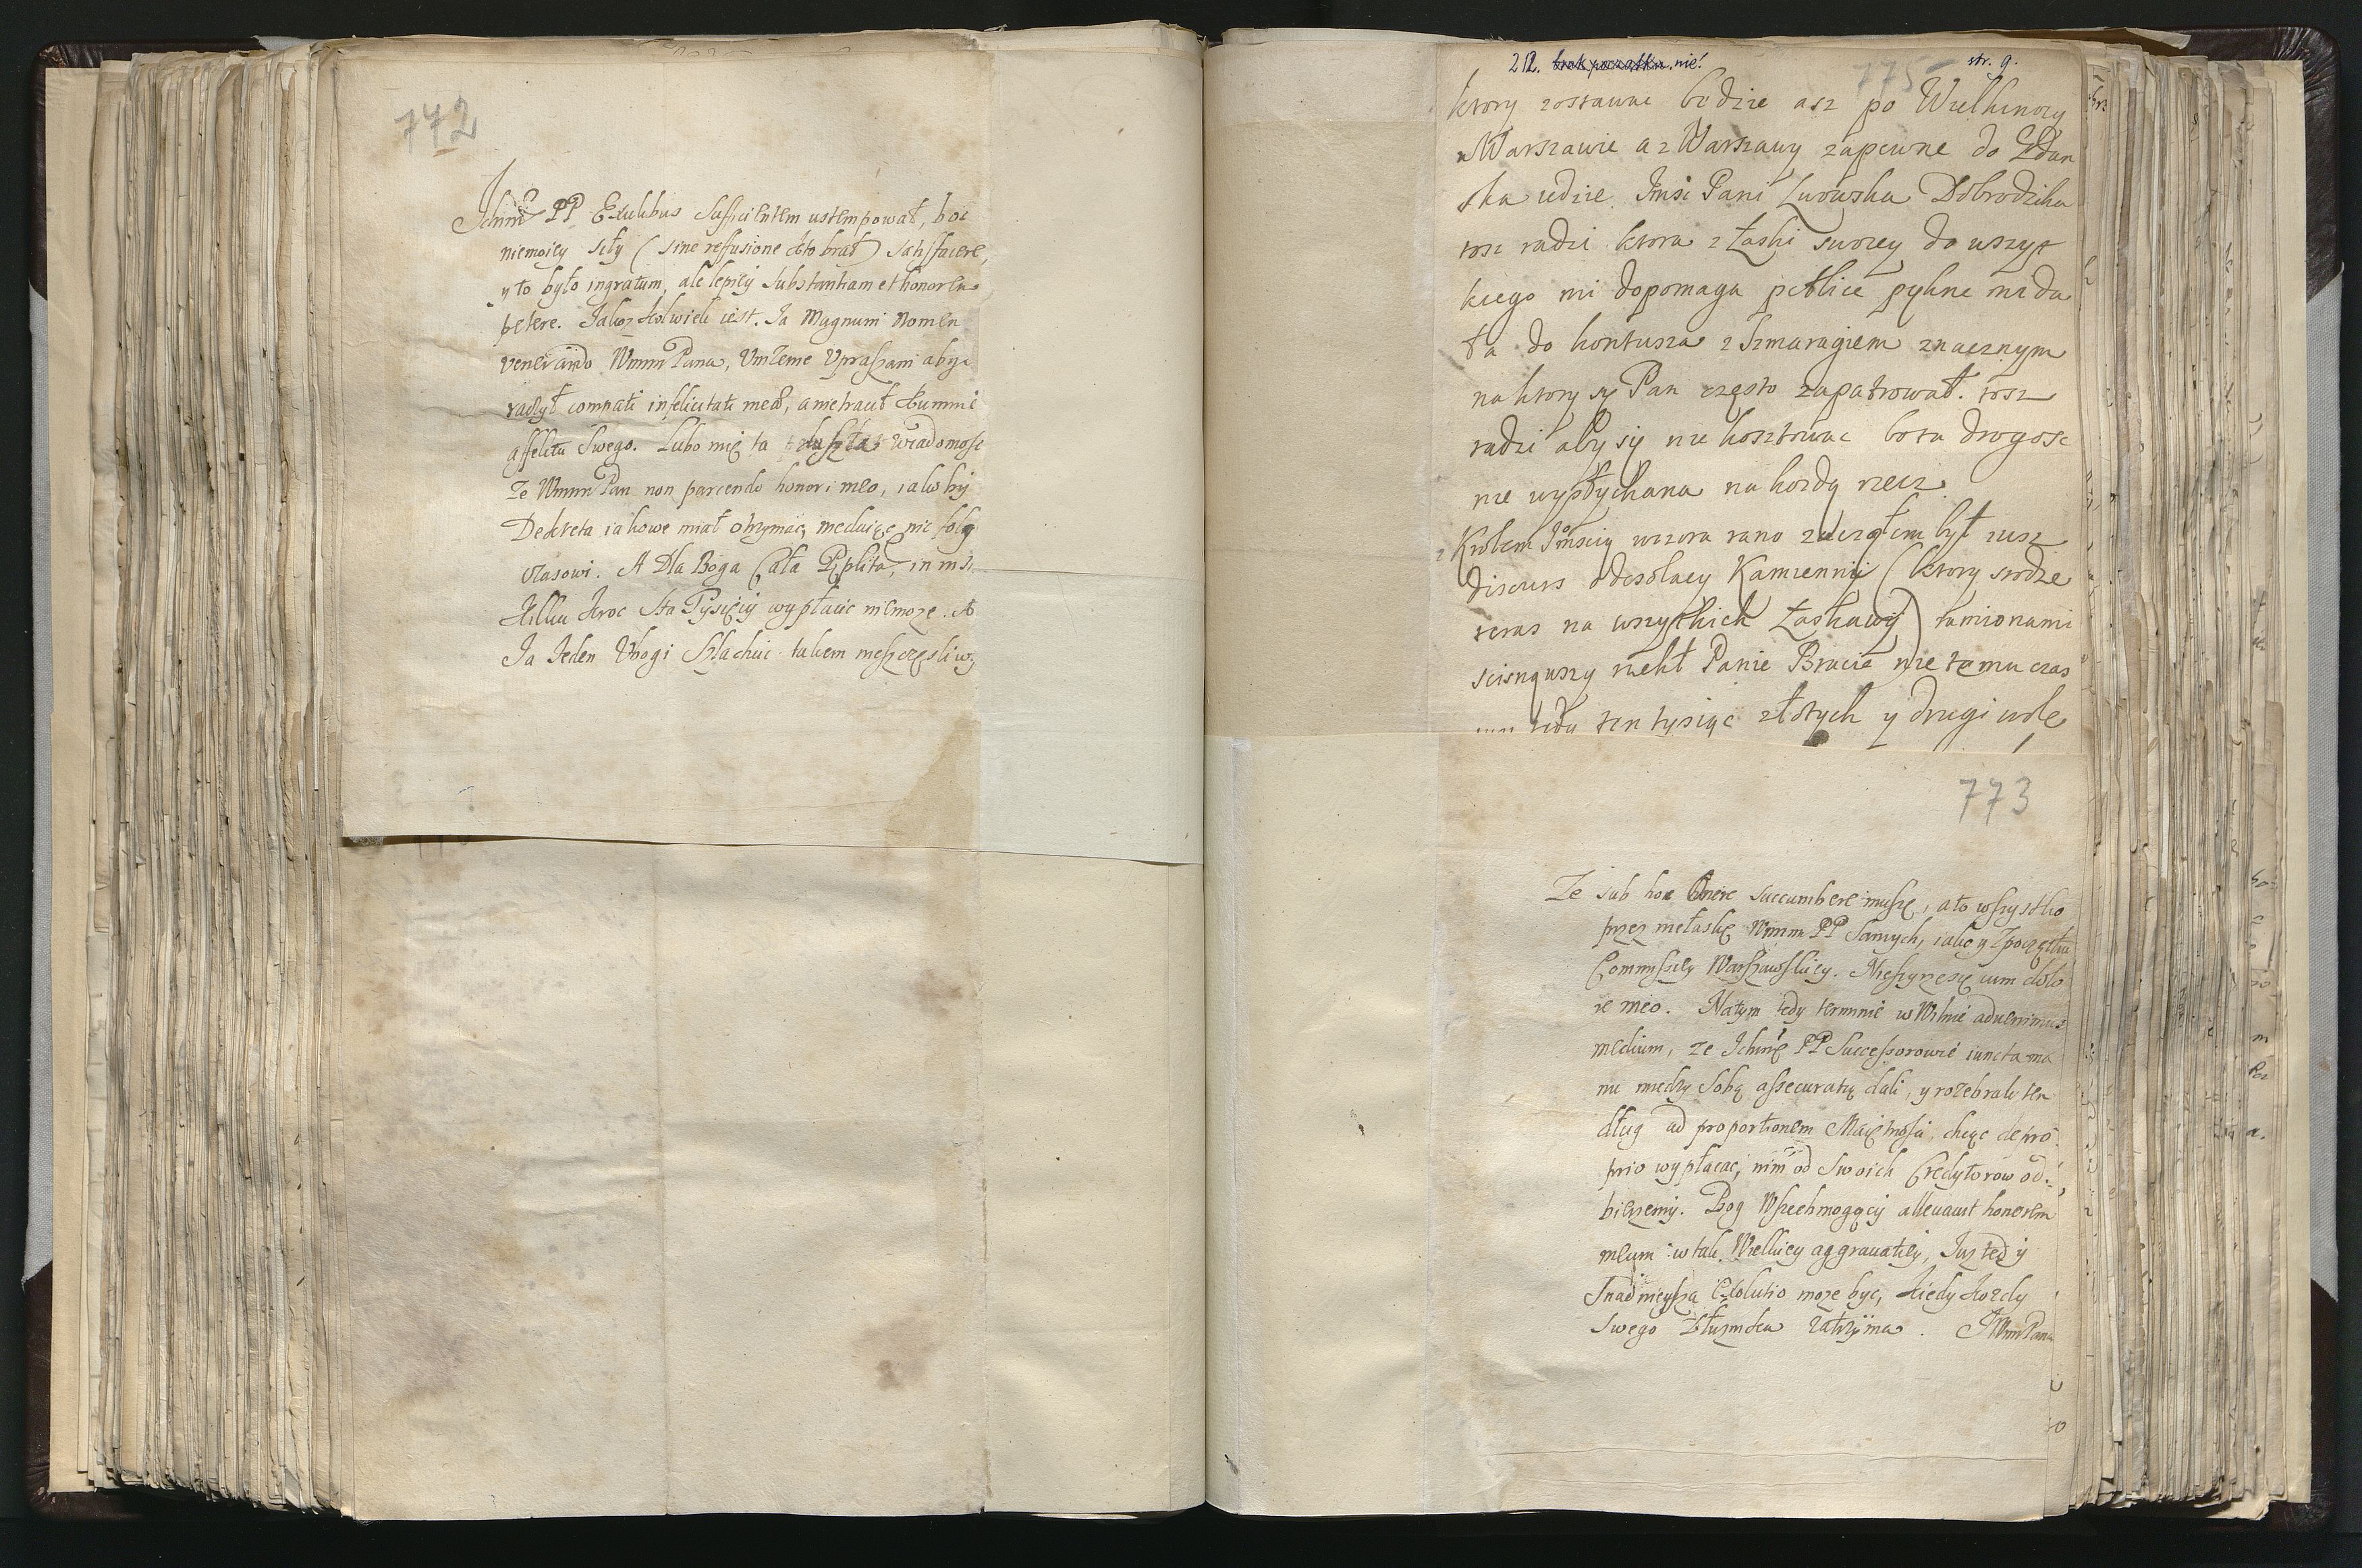 742
Ichmć PP Exulibus sufficientem ustempował, boc
niemoiey siły (sine reffusione kto brał) satisfacere,
y to było ingratum, ale lepiey substantiam et honorem
petere. Jakosz kolwiek iest. Ja Magnum Nomen
venerando Wmm Pana, Unizenie Upraszam abyś
raczył compati infelicitati meae, a nietracił ku mnie
affektu Swego. Lubo mię ta wiadomosc
Ze Wmm Pan non parcendo honori meo, iakoby
Dekreta iakowe miał otrzymać, nie folg
czasowi. A Dla Boga Cała Rzplita,
kilku kroc sto Tysięcy wypłacic niemoze. A
Ja Jeden Ubogi Szlachcic takem nieszczęsliwy
212. brak początku. nie! str. 9.
775
ktory zostawac będzie asz po Wielkinocy
w Warszawie a z Warszawy zapewne do Gdan
ska iedzie. Jmsc Pani Lwowska Dobrodzika
tosz radzi ktora z łaski swoiey do wszyt
kiego mi dopomaga petlice pękne mi da
ła do kontusza z Szmaragiem znacznym
na ktory sy Pan często zapatrował. tosz
radzi aby sy nie kosztowac bo tu drogosc
nie wysłychana na kozdą rzecz
z Krolem Jmscią wczora rano zaczołem był iusz
discurs o desolacy Kamienny (ktory srodze
teras na wszytkich Łaskawy) ramionami
scisnąwszy rzekł Panie Bracie nie temu czas
tedy ten tysiąc złotych y drugi wolę
773
Ze sub hoc onere succumbere muszę, a to wszystko
przez niełaskę Wmm PP Samych, iako y Zpoczątku
Commissiey Warszawskiey. Nieszczęsę cum dolo
re meo. Natym tedy terminie w Wilnie aduenimus
medium, ze Ichmć PP Successorowie iuncta ma
nu miedzy Sobą assecuratią dali, y rozebrali ten
dług ad proportionem Maiętnosci, chcąc de pro
prio wypłacac, nim od Swoich Credytorow od-
bierzemy. Bog Wszechmogący alleuauit honorem
meum w tak Wielkiey aggrauatiey, Iusz tedy
Snadnieysza Exolutio moze byc, kiedy kozdy
Swego Dłuznika zatrzyma. A Wmm Pana